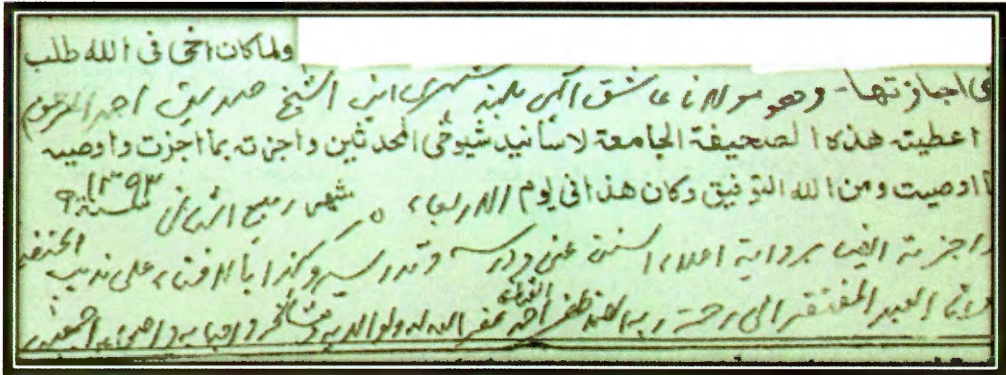 ولما كان اخى فى الله طلب
اجازتها - وهو مولانا عاشق الٰهى بلند شهرى ابن الشيخ صديق احمد المرحوم
اعطيته هذه الصحيفة الجامعة لاسانيد شيوخى المحدثين واجزته بما اجزت واوصيه
اوصيت ومن الله التوفيق وكان هذا فى يوم الاربعاء ٥ شهر ربيع الثانى سنة ١٣٩٣
واجزته ايضا برواية اعلاء السنن عنى ودرسه وتدريسه وكذا بالافتاء على مذهب الحنفية
وانا العبد المفتقر الى رحمة ربه الصمد ظفر احمد العثمانى غفر الله له ولوالديه ومشائخه واحبابه واصحابه اجمعين